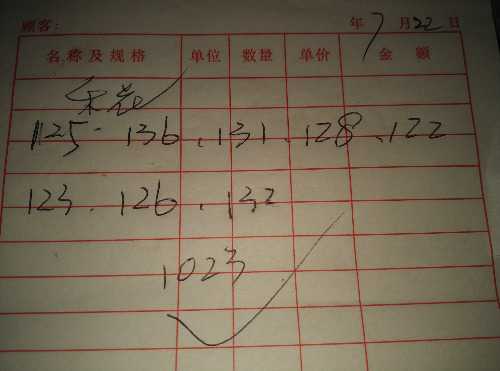 顾客: 年 7 月 22 日
名称及规格 单位 数量 单价 金 额
125 . 136 . 131 . 128 . 122
123 . 126 . 132
1023